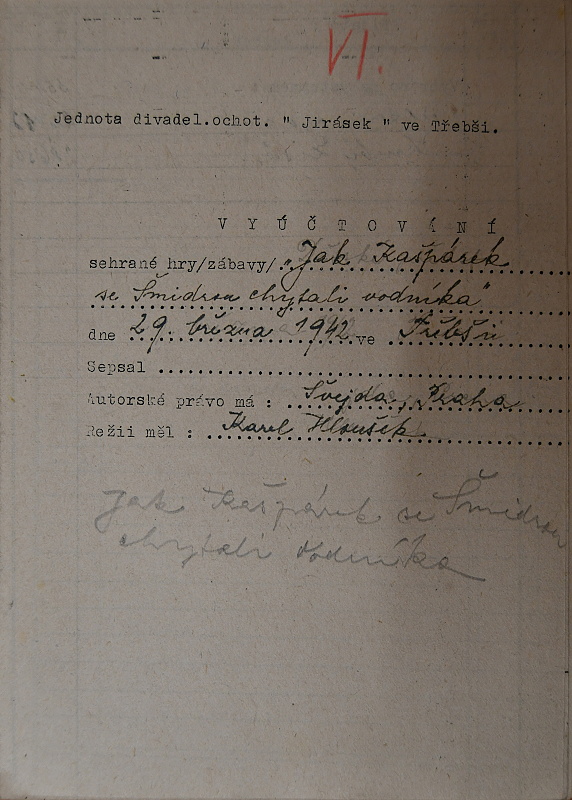 VI.
Jednota divadel.ochot. " Jirásek " ve Třebši.
V Y Ú Č T O V Á N Í
sehrané hry/zábavy/ „Jak Kašpárek
se Šmidrou chytali vodníka"
dne 29. března 1942 ve Třebši
Sepsal
Autorské právo má : Švejda, Praha
Režii měl : Karel Hloušek
Jak Kašpárek se Šmidrou
chytali vodníka